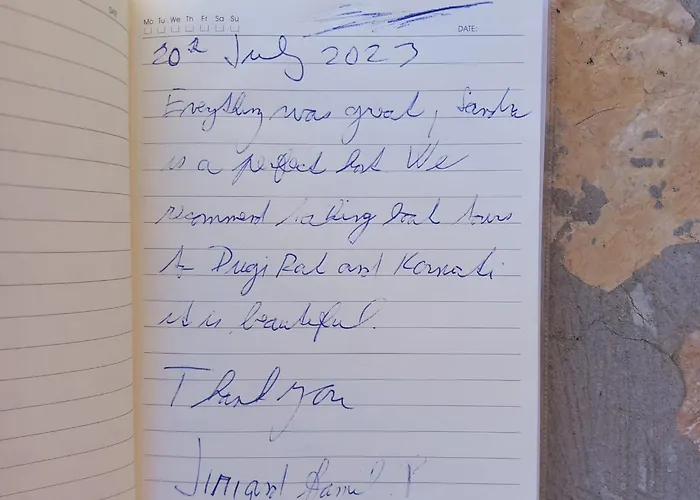 Mo Tu We Th Fr Sa Su
DATE:
20th July 2023
Everything was great, Sandra
is a perfect host We
recommend taking boat tours
to Dugi Rat and Kornati
it is beautiful.
Thank you
and